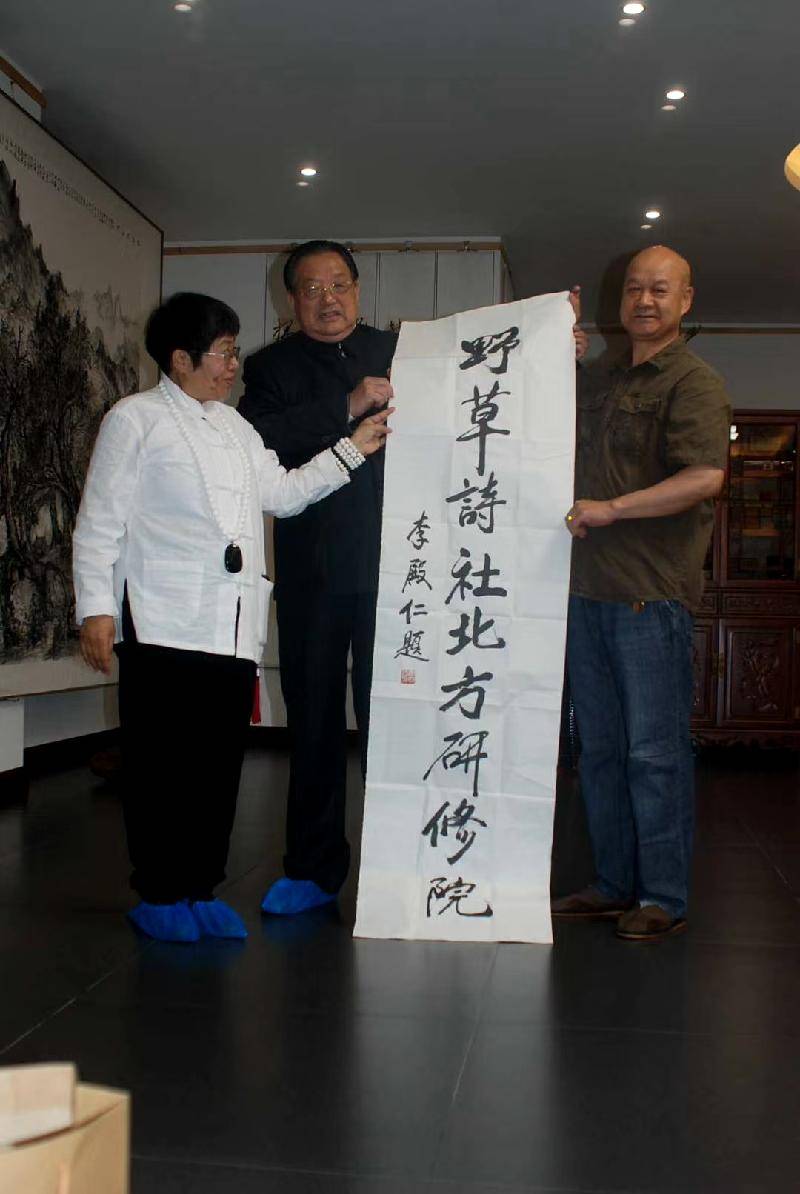 野草詩社北方研修院
李殿仁題